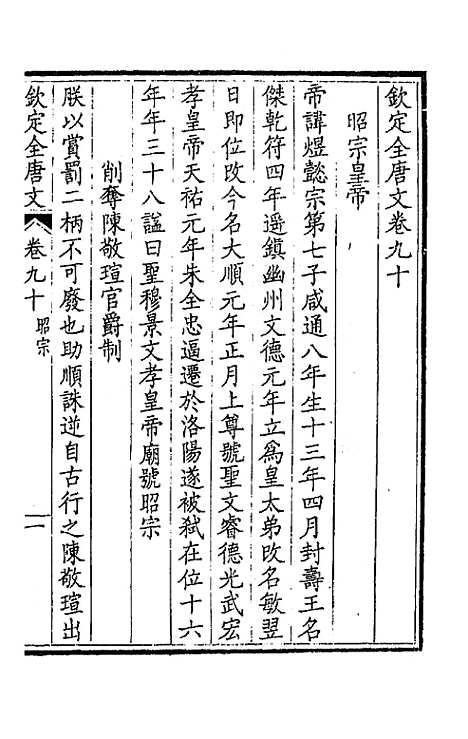 欽定全唐文卷九十
昭宗皇帝
帝諱煜懿宗第七子咸通八年生十三年四月封壽王名
傑乾符四年遥鎮幽州文德元年立爲皇太弟改名敏翌
日即位改今名大順元年正月上尊號聖文睿德光武宏
孝皇帝天祐元年朱全忠逼遷於洛陽遂被弑在位十六
年年三十八謚曰聖穆景文孝皇帝廟號昭宗
削奪陳敬瑄官爵制
朕以賞罰二柄不可廢也助順誅逆自古行之陳敬瑄出
欽定全唐文 卷九十 昭宗 一